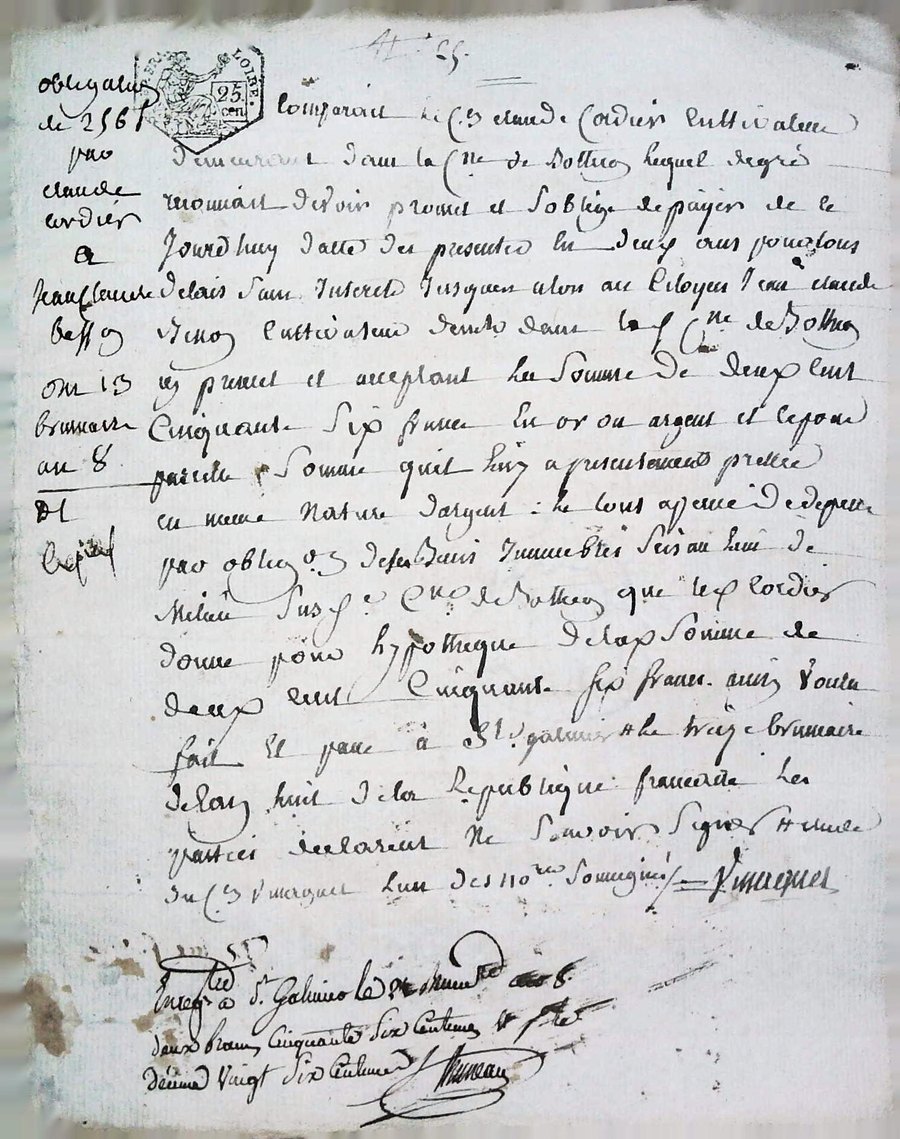 N° 25
LOIRE.
25
cen
obligation
de 256f
par
claude
cordier
a
jean Claude
besson
du 13
brumaire
an 8
Comparait le C.en claude Cordier Cultivateur
demeurant dans la C.ne de Bothéon lequel de gré
reconnait devoir promet et soblige de payer de ce
Jourdhuy datte des presentes En deux ans pour tous
delais sans Interets Jusques alors au Citoyen Jean claude
Cultivateur demt dans lad C.ne de Bothéon
cy present et acceptant La Somme de deux Cent
Cinquante Six francs En or ou argent et Cepour
pareille Somme quil luy a presentement prettée
en meme Nature dargent : le tout a peine de depens
par oblig.on de ses Biens Immeubles Sis au lieu de
Milieu Susd.e C.ne de Bothéon que led Cordier
donne pour hypotheque de lad Somme de
deux cent Cinquante Six francs. ainsi Voulu
fait Et passé à St. galmier le treize brumaire
de lan huit de la Republique francaise Les
parties declarent Ne Scavoir Signer
du C.en Vmagnet Lun des no.res Soussignés
Enreg.tré à St. Galmier le brum.re an 8.
deux francs Cinquante Six Centimes
décime Vingt Six Centimes